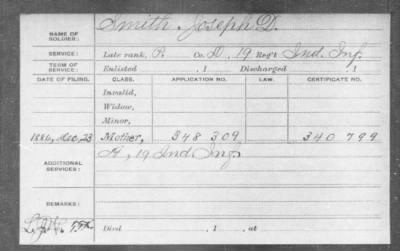 NAME OF SOLDIER: Smith, Joseph D.
SERVICE: Late rank, P. Co. A, 19 Reg't Ind. Inf.
TERM OF SERVICE: Enlisted , 1 Discharged , 1
DATE OF FILING. CLASS. APPLICATION NO. LAW. CERTIFICATE NO.
Invalid,
Widow,
Minor,
1886, Dec. 23 Mother, 348 309 340 799
ADDITIONAL SERVICES: A, 19 Ind Inf
REMARKS:
Died , 1 , at